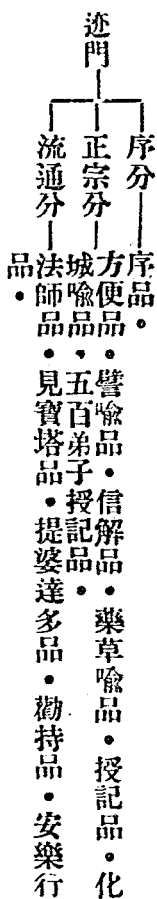 迹門
序分 序品。
正宗分 方便品。譬喩品・信解品・藥草喩品。授記品。化
城喩品、五百弟子授記品・
流通分 法師品・見寶塔品・提婆達多品・勸持品・安樂行
品・